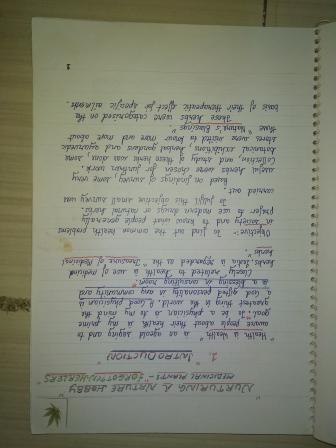 NURTURING A NATURE HOBBY
MEDICINAL PLANTS - FORGOTTEN HEALERS
1. INTRODUCTION
"Health is Wealth" is an ageold saying and to
aware people about their health is my prime
goal. To be a physician is to my mind the
greatest thing in the world. A good physician is
a God gifted personality in any community and
is a blessing in consulting Room.
Closely related to health is use of medicinal
herbs. India is regarded as the "Treasure of Medicinal
herbs.
Objective: To find out the common Health problems
in Society and to know what people generally
prefer to use modern drugs or natural herbs.
To fulfil this objective small survey was
carried out.
Based on findings of survey, some very
major herbs were chosen for further work.
Collection, and study of these herbs was done, some
botanical exhibitions, herbal gardens and ayurvedic
stores were visited to know more and more about
these "Nature's Blessings".
These herbs were categorised on the
basis of their therapeutic effect for specific ailments.